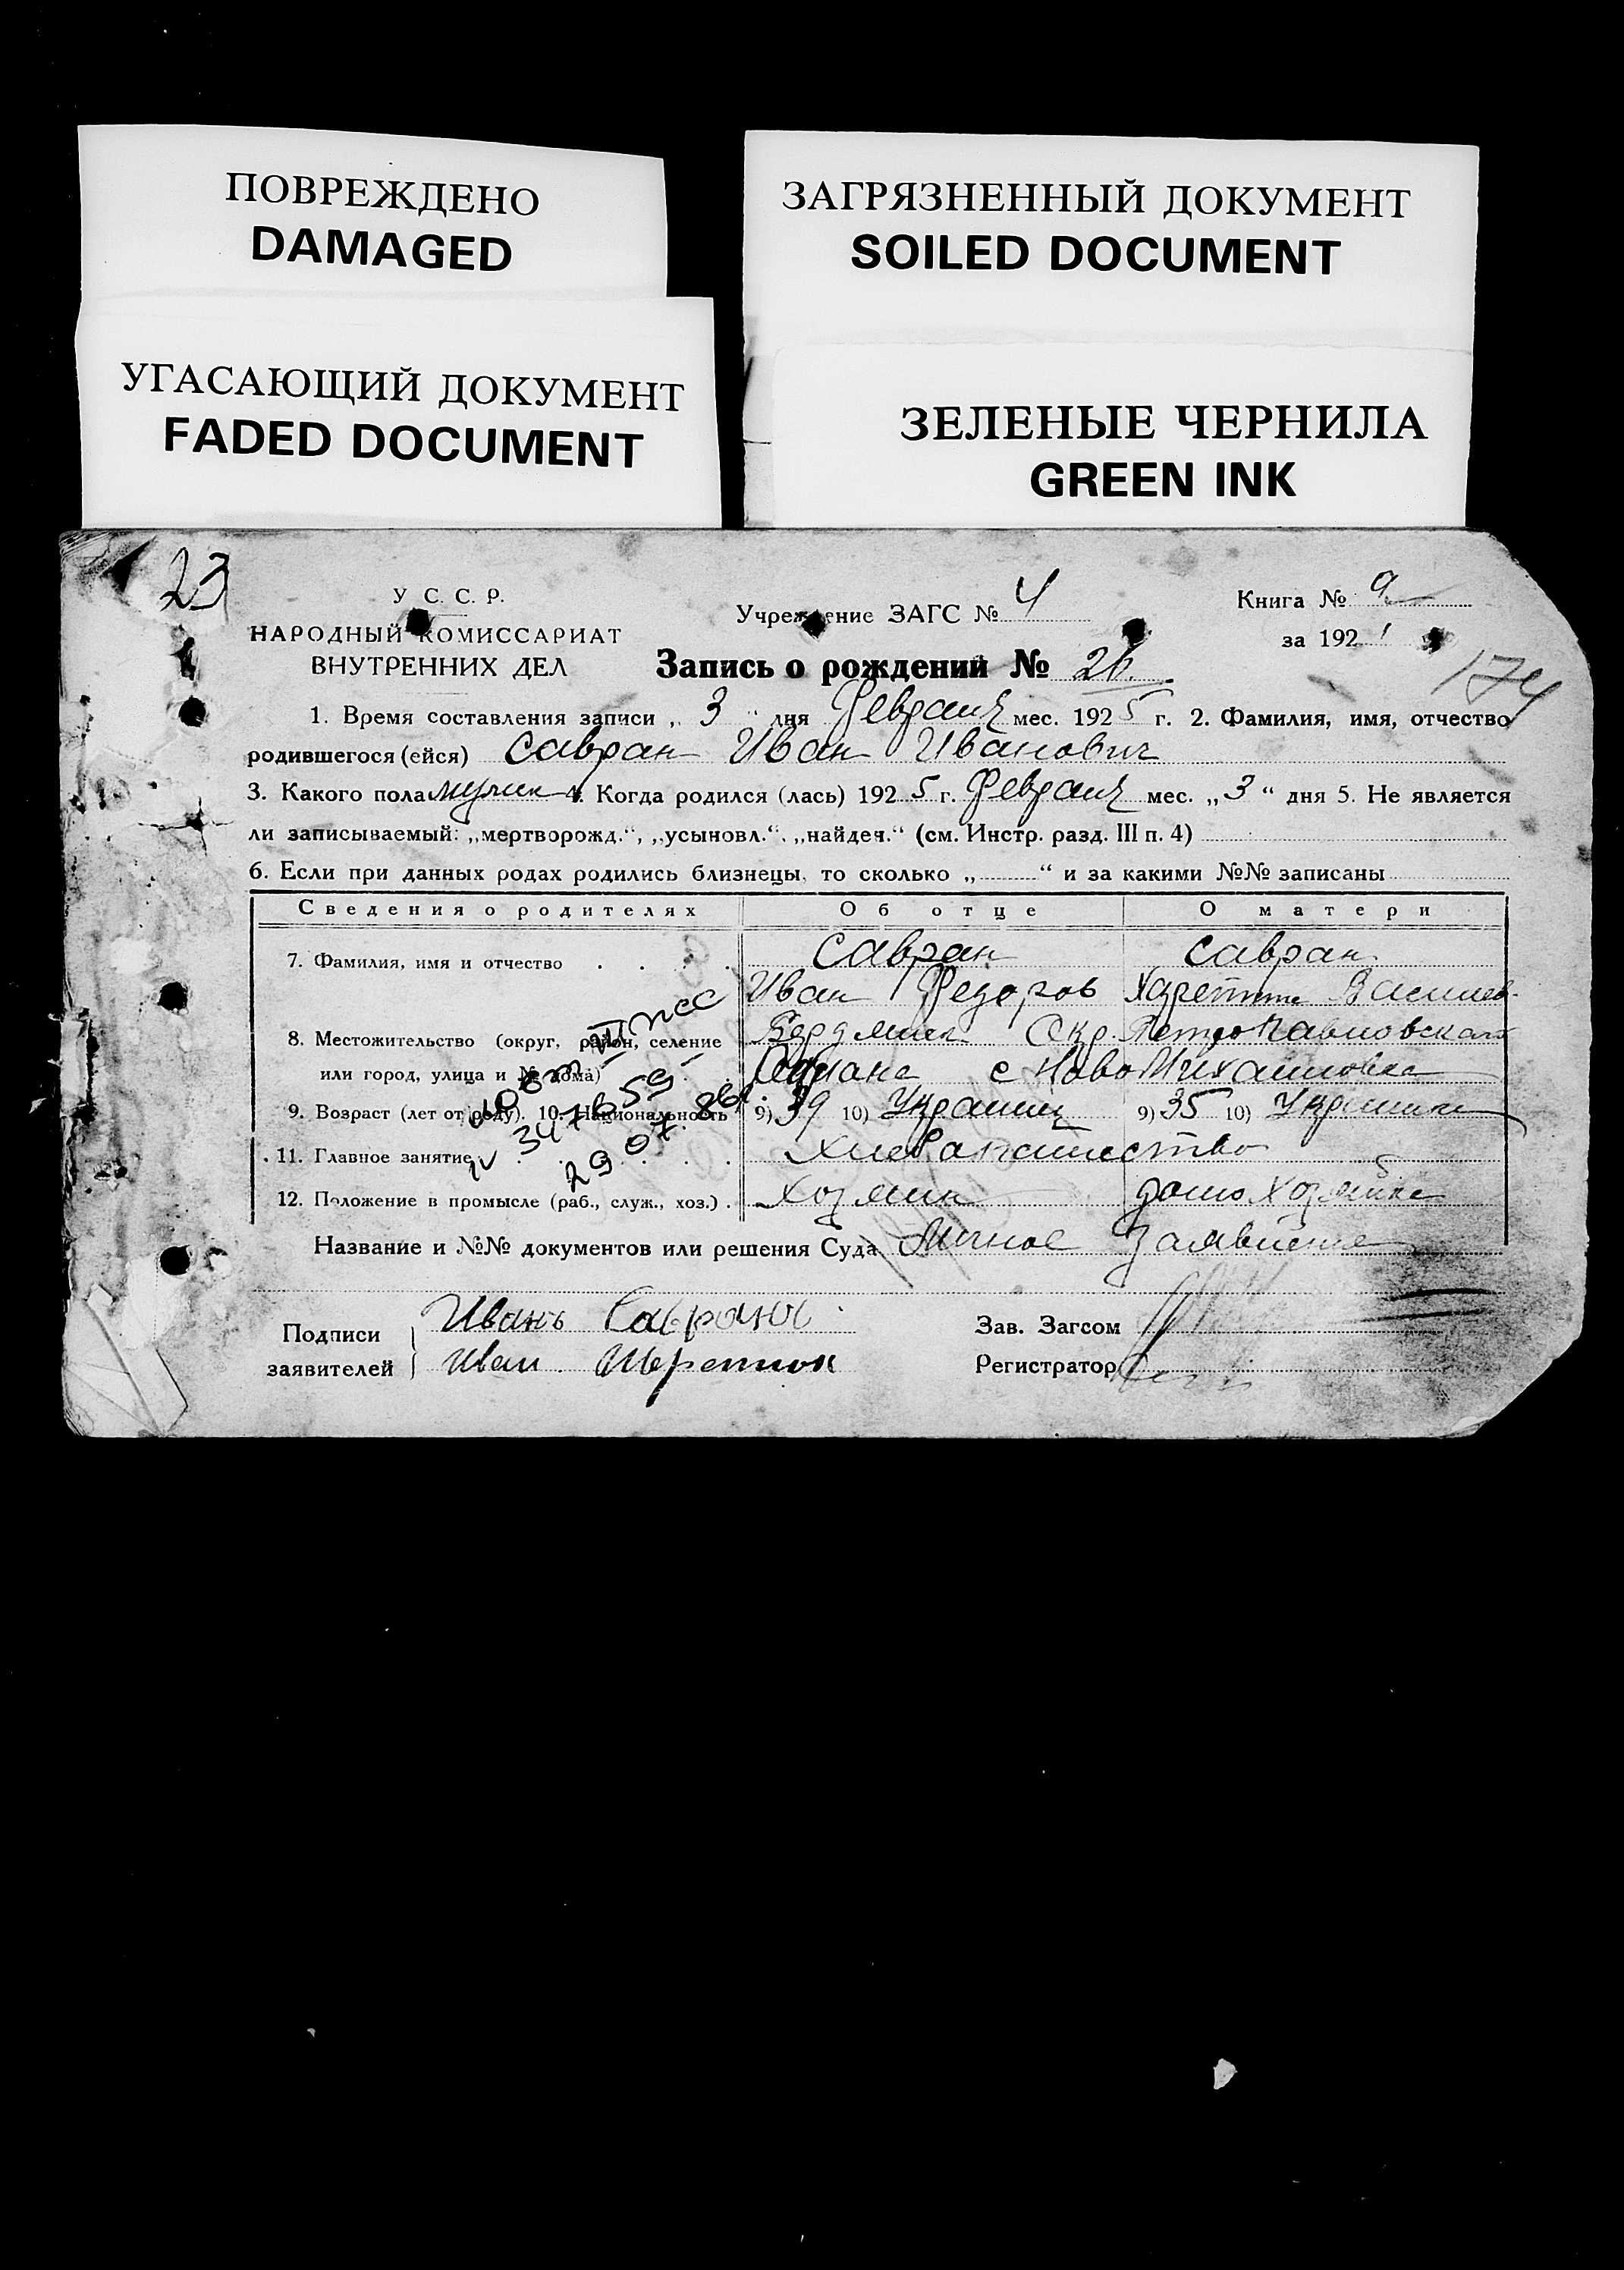 ПОВРЕЖДЕНО
DAMAGED
ЗАГРЯЗНЕННЫЙ ДОКУМЕНТ
SOILED DOCUMENT
УГАСАЮЩИЙ ДОКУМЕНТ
FADED DOCUMENT
ЗЕЛЕНЫЕ ЧЕРНИЛА
GREEN INK
23
У С. С. Р.
НАРОДНЫЙ КОМИССАРИАТ
ВНУТРЕННИХ ДЕЛ
Учреждение ЗАГС № 4
Книга № 9
за 192
174
Запись о рождении № 26.
1. Время составления записи „ 3 “ дня Февраля мес. 1925 г. 2. Фамилия, имя, отчество
родившегося (ейся) Савран Иван Иванович
3. Какого пола мужск 4. Когда родился (лась) 1925 г. Февраля мес. „3“ дня 5. Не является
ли записываемый: „мертворожд.“, „усыновл.“, „найден.“ (см. Инстр. разд. III п. 4)
6. Если при данных родах родились близнецы, то сколько „ “ и за какими №№ записаны
Сведения о родителях Об отце О матери
7. Фамилия, имя и отчество Савран Савран
Иван Федоров Василев
8. Местожительство (округ, район, селение Окр. Петропавловского
или город, улица и № дома) Района с Ново Михайловка
9. Возраст (лет от роду). 10. Национальность 9) 39 10) Украинец 9) 35 10) Украинка
11. Главное занятие Хлебопашество
12. Положение в промысле (раб., служ., хоз.) Хозяин домохозяйка
Название и №№ документов или решения Суда Личное Заявление
347659
29 07 86г.
Подписи
заявителей
Иванъ Савранъ
Иван
Зав. Загсом
Регистратор